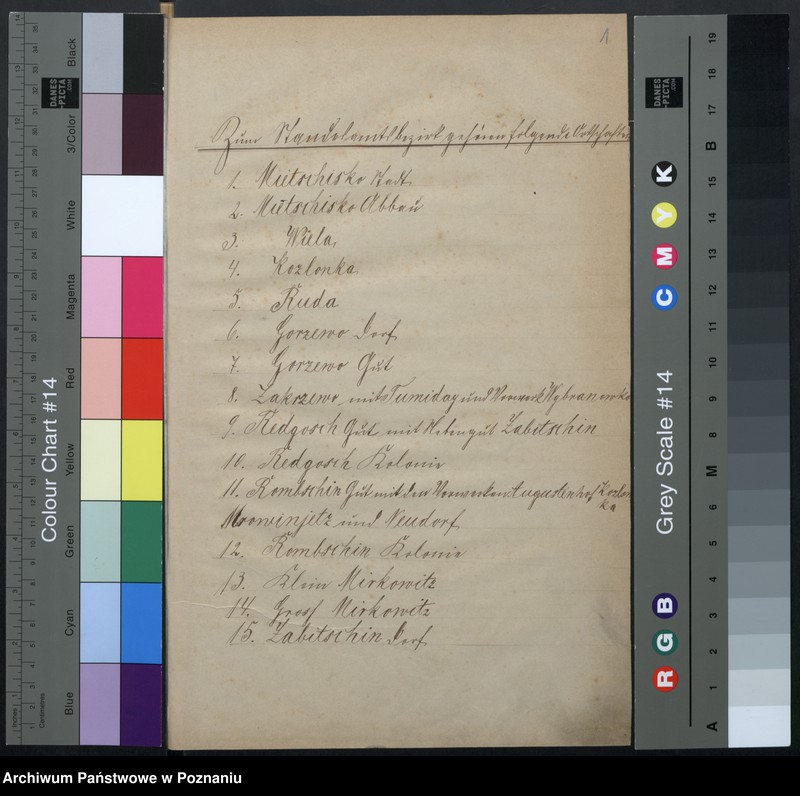 1
Zum Standesamtsbezirk gehören folgende Ortschaften
1. Mietschisko Stadt
2. Mietschisko Abbau
3. Wiela
4. Kozlonka
5. Ruda
6. Gorzewo Dorf
7. Gorzewo Gut
8. Zakrzewo mit und Vorwerk Wybranowko
9. Redgosch Gut mit Nebengut Zabitschin
10. Redgosch Kolonie
11. Rombschin Gut mit den Vorwerken Augustenhof Kozlon
ka
und Neudorf
12. Rombschin Kolonie
13. Klein Mirkowitz
14. Gross Mirkowitz
15. Zabitschin Dorf
Colour Chart #14
Blue
Cyan
Green
Yellow
Red
Magenta
White
3/Color
Black
DANES
-PICTA
.COM
Inches
Centimetres
Grey Scale #14
DANES
-PICTA
.COM
R G B
C M Y K
A 1 2 3 4 5 6 M 8 9 10 11 12 13 14 15 B 17 18 19
Archiwum Państwowe w Poznaniu